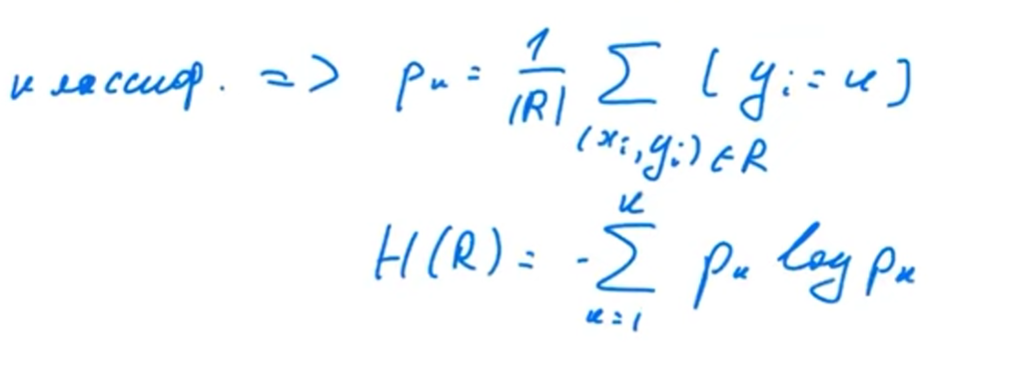 классиф. => p_k = 1/|R| ∑_{(x_i, y_i) ∈ R} [y_i = k]
H(R) = - ∑_{k=1}^{K} p_k log p_k